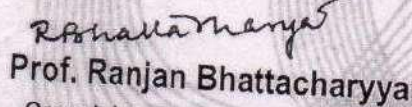 RBhattacharyya
Prof. Ranjan Bhattacharyya